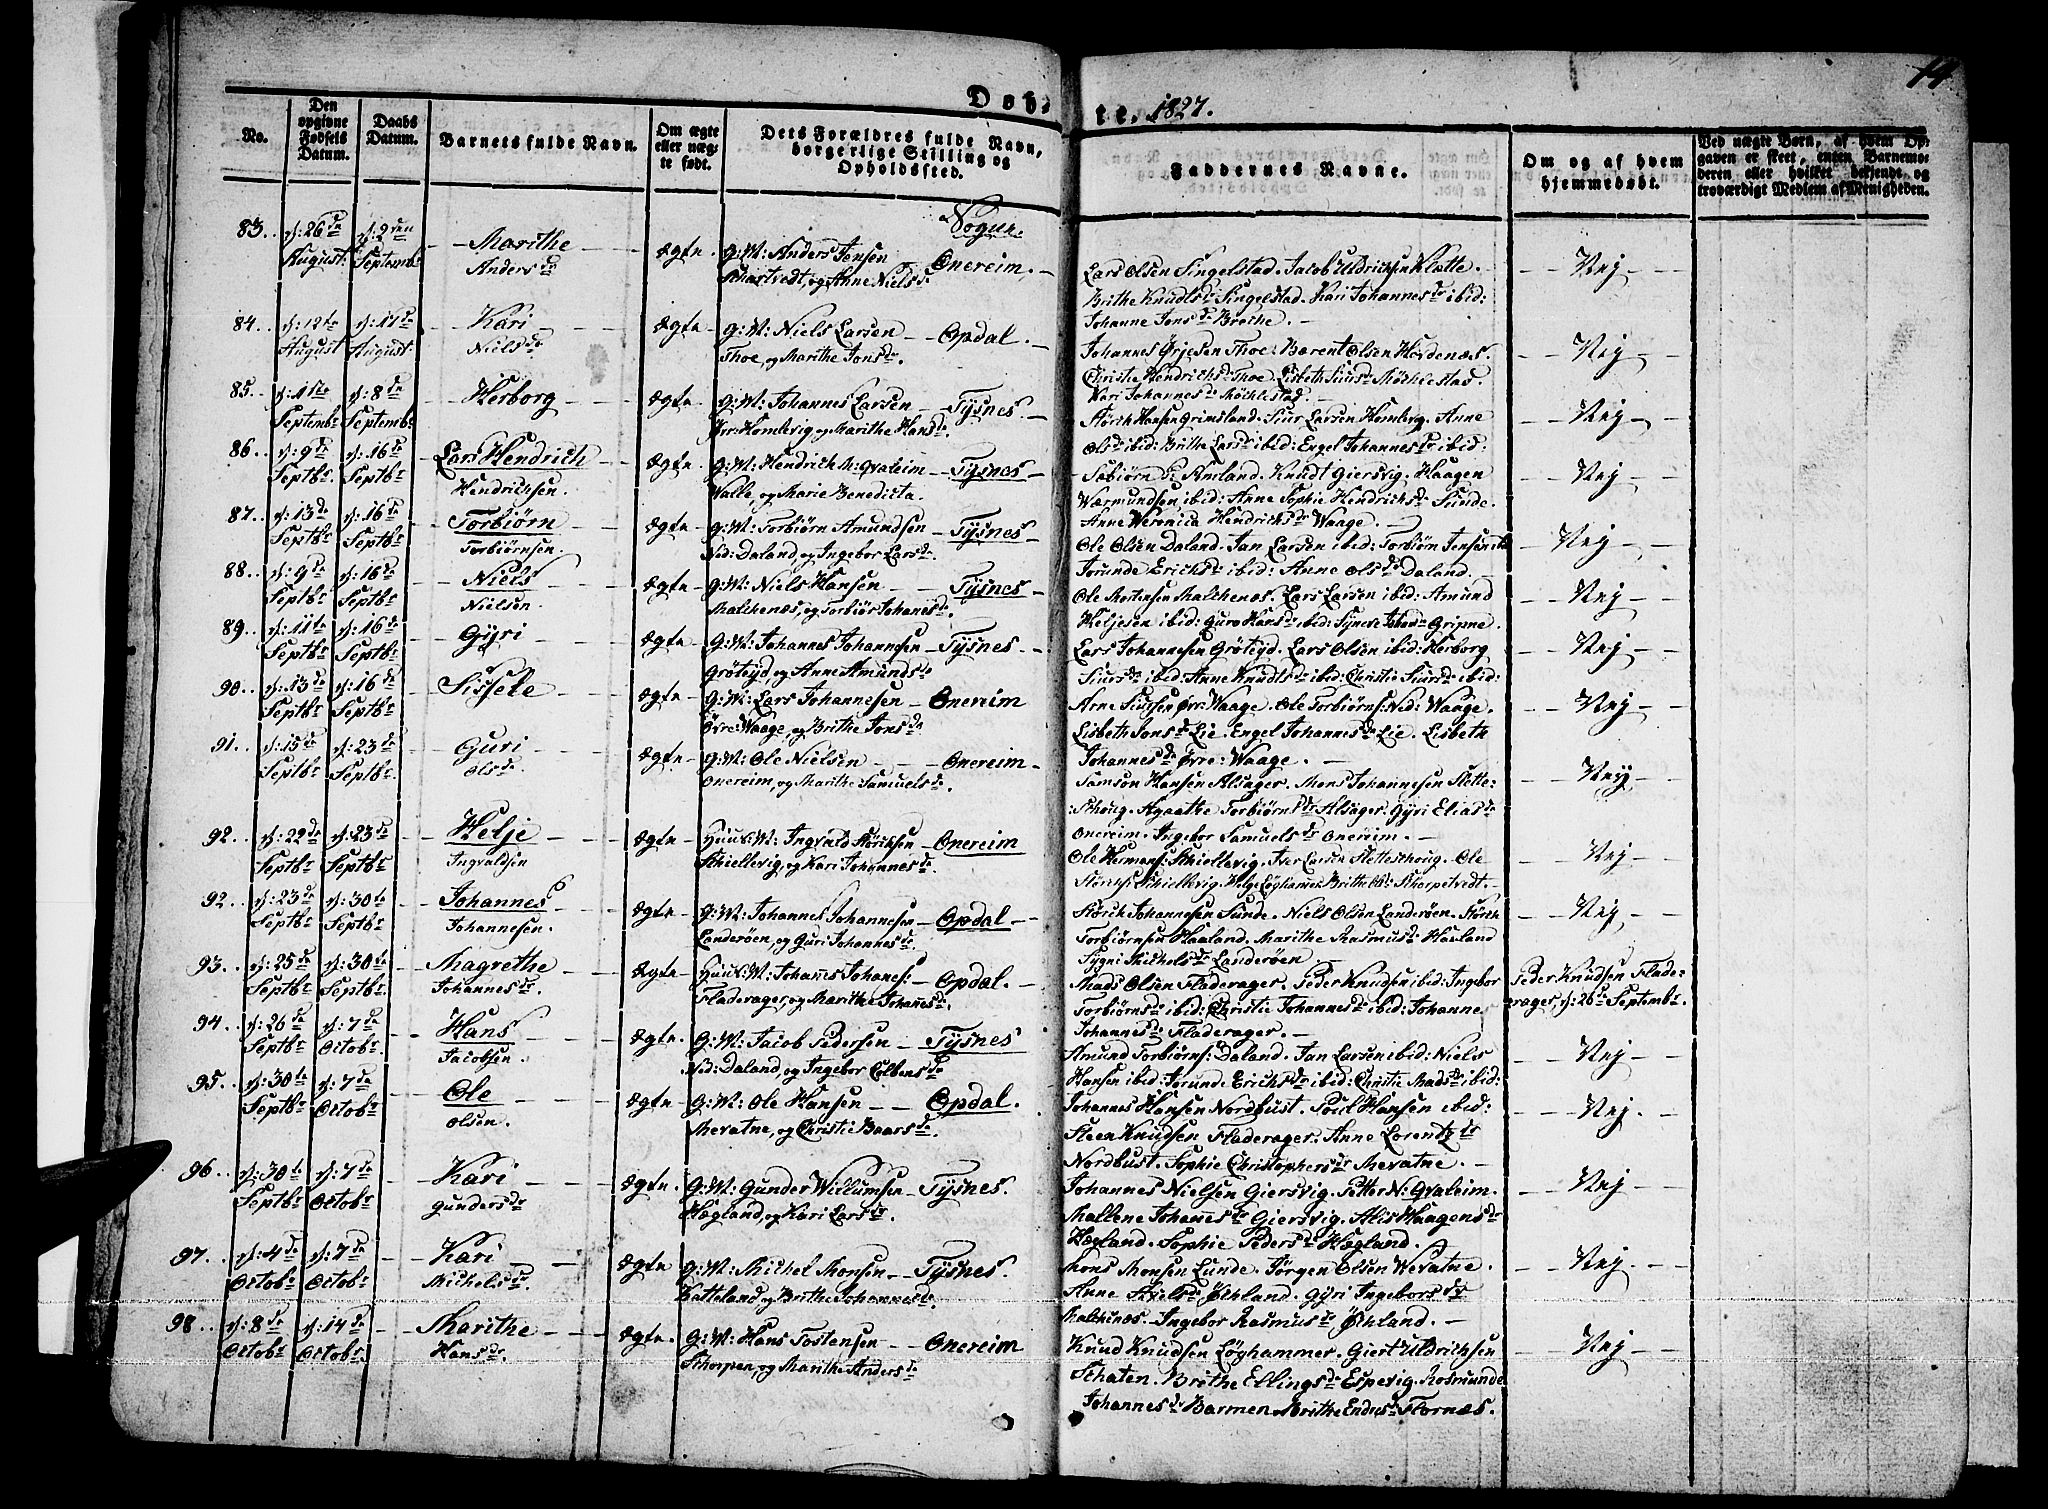 14
Døb te. 1827.
No. Den opgivne Fødsels Datum. Daabs Datum. Barnets fulde Navn. Om ægte eller uægte født. Dets Forældres fulde Navn, borgerlige Stilling og Opholdssted. Faddernes Navne. Om og af hvem hjemmedøbt. Ved uægte Børn, af hvem Opgaven er skeet, enten Barnemoderen eller hvilket bekjendt og troværdigt Medlem af Menigheden.
Sogne.
83. d: 26de August d: 2den Septemb: Marithe Andersdr ægte. G: M: Anders Jensen Skartvedt, og Anne Nielsdr Onereim. Lars Olsen Singelstad. Jacob Uldrichsen Klætte.
Brithe Knudsdr Singelstad. Kari Johannesdr ibid:
Johanne Jonsdr Brethe. Nej
84. d: 12te August d: 17de August. Kari Nielsdr ægte G: M: Niels Larsen Thoe, og Marithe Jonsdr. Opdal. Johannes Ørjesen Thoe. Bærent Olsen Hordenæs.
Christie Hendrichsdr Thoe. Lisbeth Siursdr Møchlestad.
Kari Johannesdr Møchlestad. Nej
85. d: 1ste Septembr d: 8de Septembr Herborg ægte G: M: Johannes Larsen Homlevig og Marithe Hansdr. Tysnes. Størch Hansen Grimsland. Siur Larsen Homberg. Anne
Olsdr ibid: Brithe Larsdr ibid: Engel Johannesdr ibid: Nej
86. d: 9de Septbr. d: 16de Septbr Lars Hendrich Hendrichsen. ægte G: M: Hendrich N: Qvaleim Valle, og Marie Benedicta. Tysnes Sæbiørn Amland. Knudt Giersvig, Haagen
Wærmundsen, ibid: Anne Sophie Hendrichsdr Sunde.
Anne Weronica Hendrichsdr Waage. Nej
87. d: 13de Septbr d: 16de Septbr Torbiørn Torbiørnsen. ægte G: M: Torbiørn Amundsen Ned: Daland, og Ingebor Larsdr. Tysnes Ole Olsen Daland. Jan Larsen ibid: Torbiørn Jensen
Jorunde Erichsdr ibid: Anne Olsdr Daland. Nej
88. d: 9de Septbr d: 16de Septbr Niels Nielsen. ægte G: M: Niels Hansen Malchenæs, og Torbiør Johanesdr. Tysnes Ole Mortensen Malchenæs. Lars Larsen ibid: Amund
Heljesen ibid: Guro Hansdr ibid: Gripne. Nej
89. d: 11te Septbr d: 16de Septbr Gyri ægte. G: M: Johannes Johannesen Grøteyd, og Anne Amundsdr Tysnes Lars Johannesen Grøteyd. Lars Olsen ibid: Herborg
Siursdr ibid: Anne Knudsdr ibid: Christie Siursdr ibid: Nej
90. d: 13de Septbr d: 16de Septbr. Sissele ægte G: M: Lars Johannesen Øvre: Waage, og Brithe Jonsdr Onereim Arne Siursen Øvre Waage. Ole Torbiørns: Ned: Waage.
Lisbeth Jonsdr Lie. Engel Johannesdr Lie. Lisbeth
Johannesdr Øvre: Waage. Nej
91. d: 15de Septbr d: 23de Septbr. Guri Olsdr ægte G: M: Ole Nielsen Onereim, og Marithe Samuelsdr. Onereim Samson Hansen Alsager. Mons Johannesen Slette-
skoug. Agaathe Torbiørnsdr Alsager. Gyri Eliasdr
Onereim. Ingebor Samuelsdr Onereim. Nej
92. d: 22de Septbr d: 23de Septbr Helje Ingvaldsen ægte Huus: M: Ingvald Størchsen Skiellevig, og Kari Johannesdr Onereim Ole Hermans: Skiellevig. Iver Larsen Sletteskoug. Ole
Størchs: Skiellevig. Helge Løghammer. Brithe Skorpetvedt. Nej
92. d: 23de Septbr d: 30te Septbr Johannes Johannesen. ægte G: M: Johannes Johannesen Landerøen, og Guri Johannesdr. Opdal Størch Johannesen Sunde. Niels Olsen Landerøen. Størch
Torbiørnsen Haaland. Marithe Rasmusdr Haaland
Sygni Michelsdr Landerøen. Nej
93. d: 25de Septbr d: 30te Septbr Magrethe Johannesdr. ægte Huus: M: Johanes Johanes: Fladerager, og Marithe Johanesdr. Opdal. Mads Olsen Fladerager. Peder Knudsen ibid: Ingebor
Torbiørnsdr ibid: Christie Johannesdr ibid: Johanne
Johannesdr Fladerager. Peder Knudsen Flade-
rager, d: 26de Septembr.
94. d: 26de Septbr d: 7de Octobr. Hans Jacobsen. ægte. G: M: Jacob Pedersen Ned: Daland, og Ingebor Colbensdr Tysnes Amund Torbiørns: Daland. Jan Larsen ibid: Niels
Hansen ibid: Jorunde Erichsdr ibid: Christie Madsdr ibid: Nej
95. d: 30te Septbr d: 7de Octobr Ole Olsen. ægte G: M: Ole Hansen Mevatne, og Christie Baarsdr. Opdal. Johannes Hansen Nordhust. Poul Hansen ibid:
Steen Knudsen Fladerager. Anne Lorentzdr
Nordhust. Sophie Christophersdr Mevatne. Nej.
96. d: 30te Septbr d: 7de Octobr. Kari Gundersdr ægte. G: M: Gunder Willumsen Hægland, og Kari Larsdr. Tysnes. Johannes Nielsen Giersvig. Petter N: Qvaleim.
Mallene Johanesdr Giersvig. Alis Haagensdr
Hægland. Sophie Pedersdr Hægland. Nej
97. d: 4de Octobr d: 7de Octobr. Kari Michelsdr. ægte G: M: Michel Monsen Katteland og Brithe Johannesdr. Tysnes. Mons Monsen Lunde. Jørgen Olsen Wevatne.
Anne Axelsdr Økland. Gyri Ingeborsdr
Malchenæs. Ingebor Rasmusdr Økland. Nej.
98. d: 8de Octobr d: 14de Octobr. Marithe Hansdr. ægte. G: M: Hans Tostensen Skorpen, og Marithe Andersdr Onereim Knud Knudsen Løghammer. Giert Uldrichsen
Skaten. Brithe Ellingsdr Espevig. Rosmunde
Johannesdr Barmen. Brithe Endresdr Stornæs. Nej